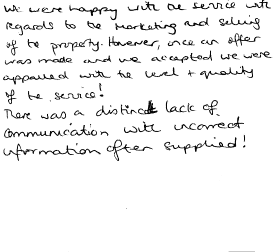 We were happy with the service with
regards to the marketing and selling
of the property. However, once an offer
was made and we accepted we were
appauled with the level + quality
of the service!
There was a distinct lack of
communication with incorrect
information often supplied!